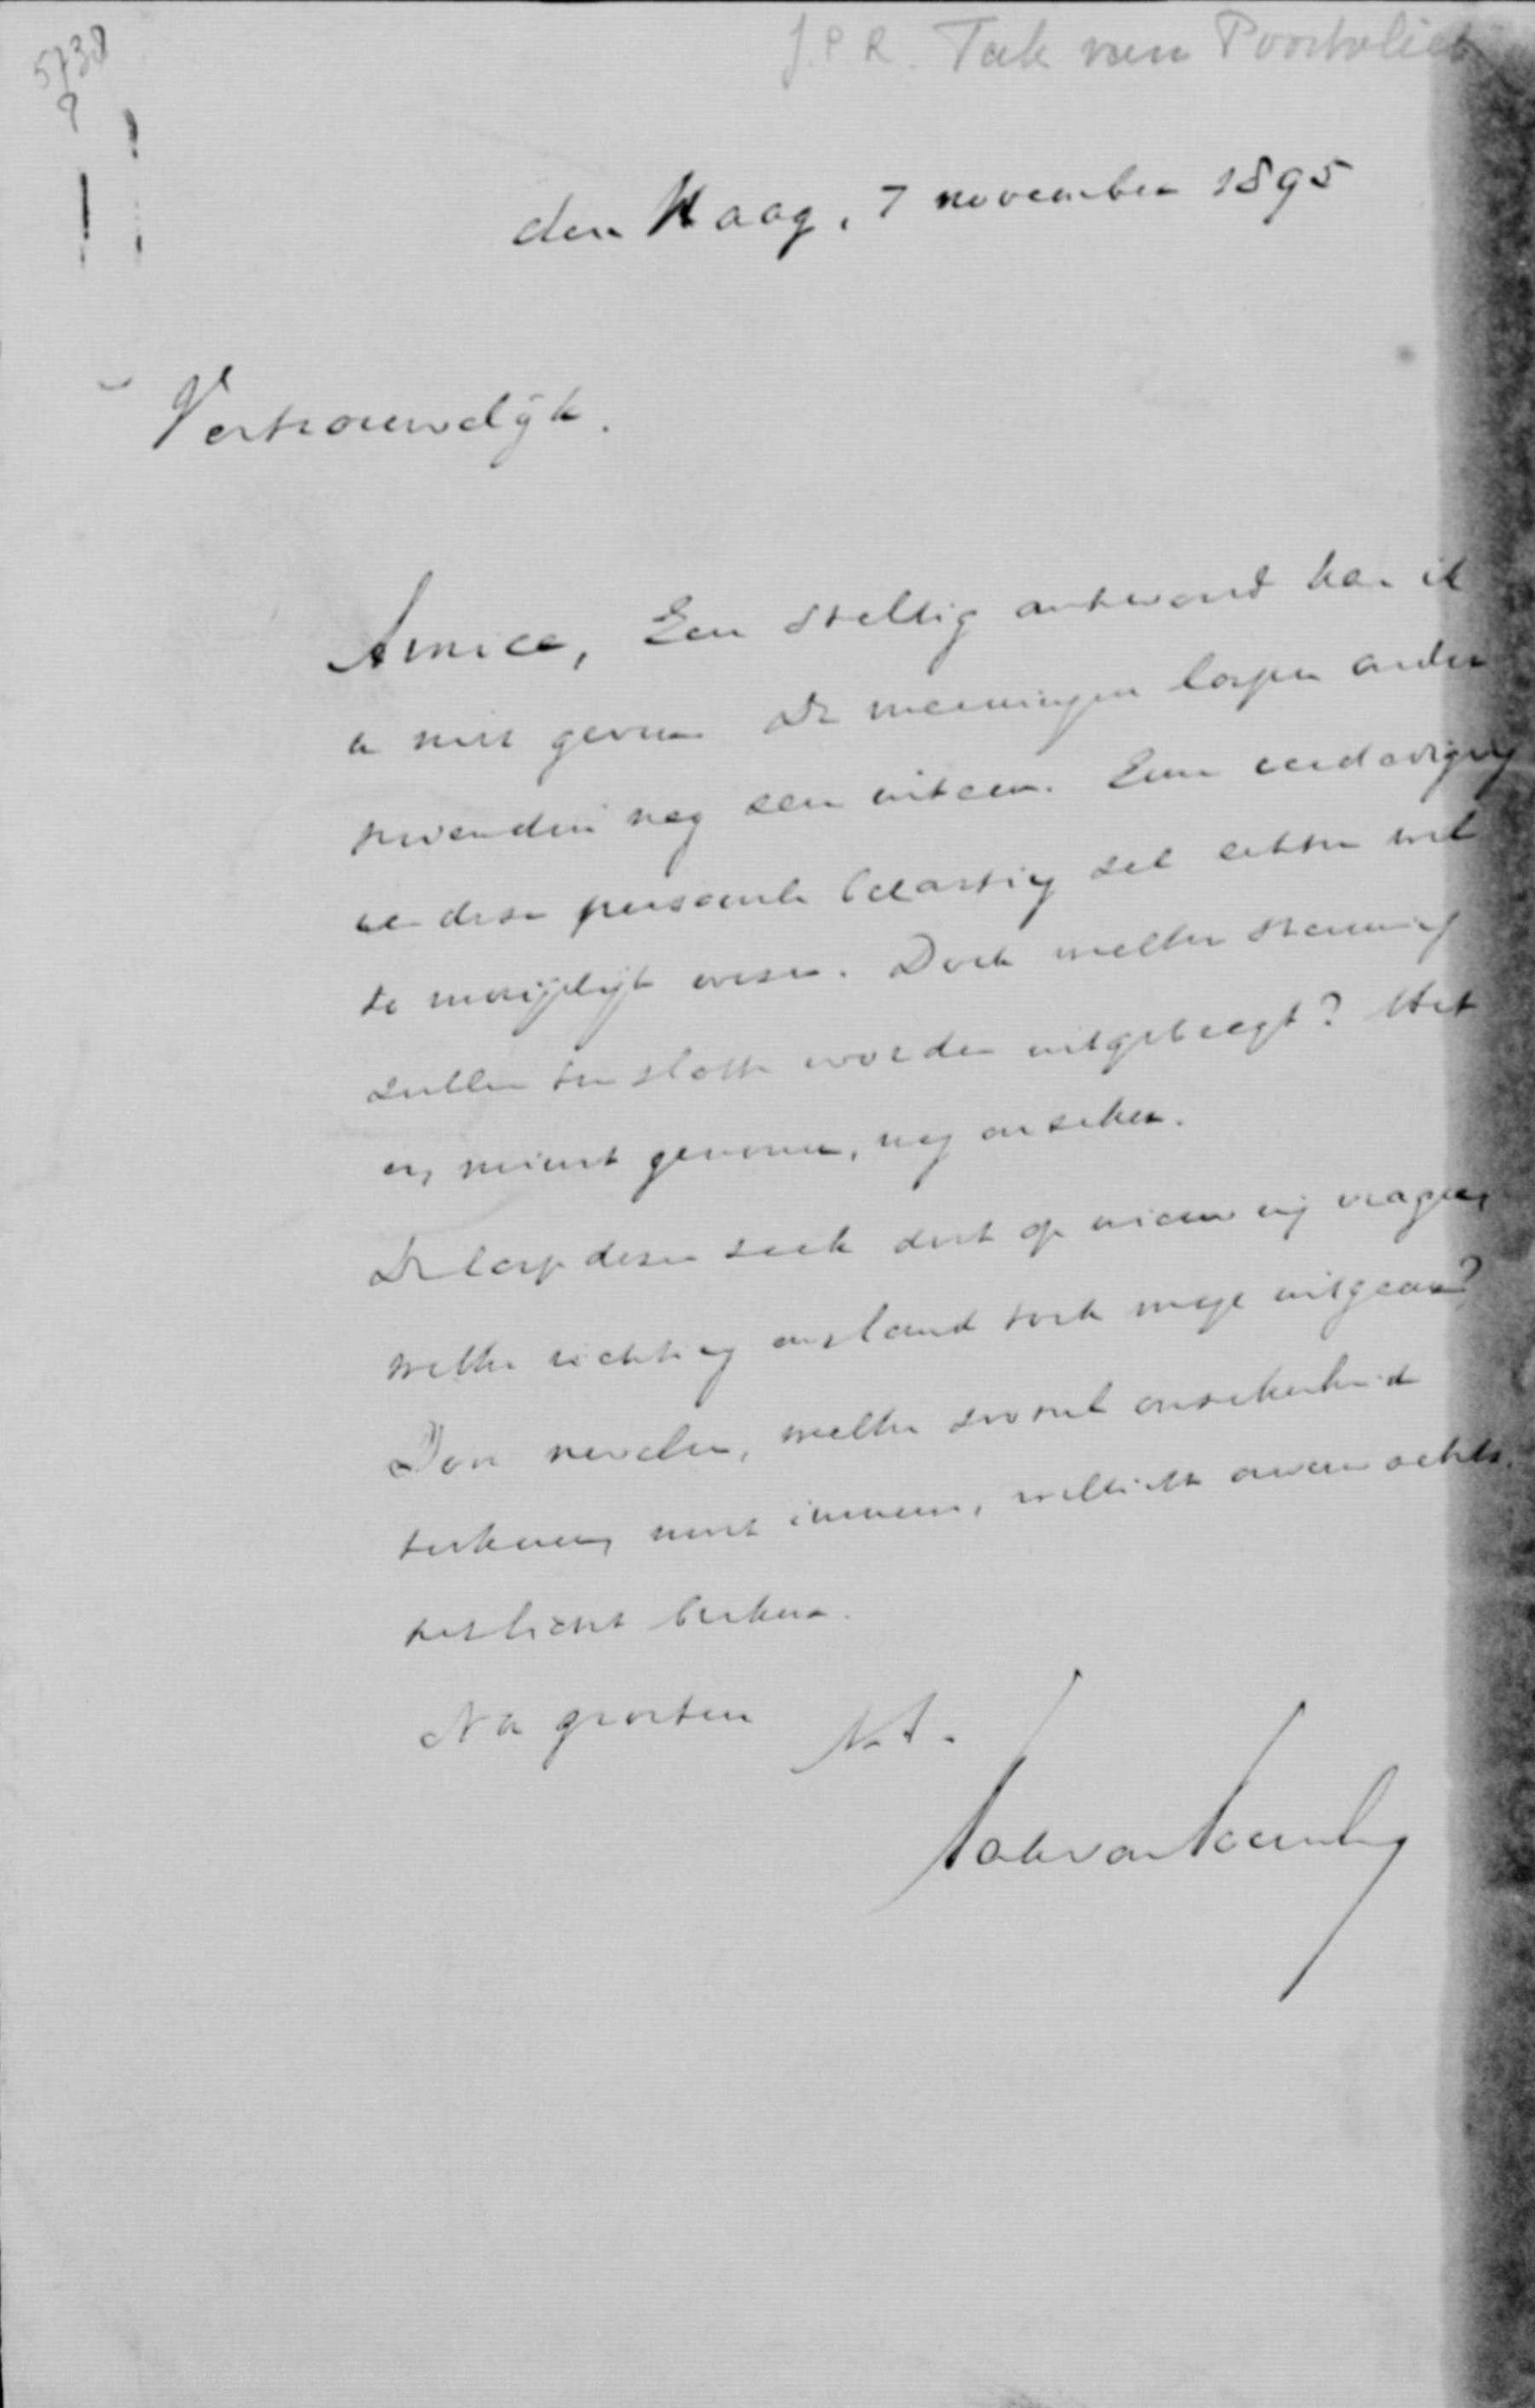 5738
J.P.R. Tak van Poortvliet
den Haag, 7 november 1895
Vertrouwelijk.
Amice, Een stellig antwoord kan ik
u niet geven De meeningen loopen onder
vrienden nog zeer uiteen. Eene verdediging
van deze personeele belasting zal echter wel
te moeijelijk wezen. Doch welke stemmen
zullen ten slotte worden uitgebragt? Het
is, mijns gevoelens, nog onzeker.
De loop dezer zaak doet op nieuw mij vragen,
welke richting ons land toch moge uitgaan?
Den vrienden, welke zooveel onzekerheid
niet immer, wellicht
het licht
Na groeten t.t.
Tak van Poortvliet